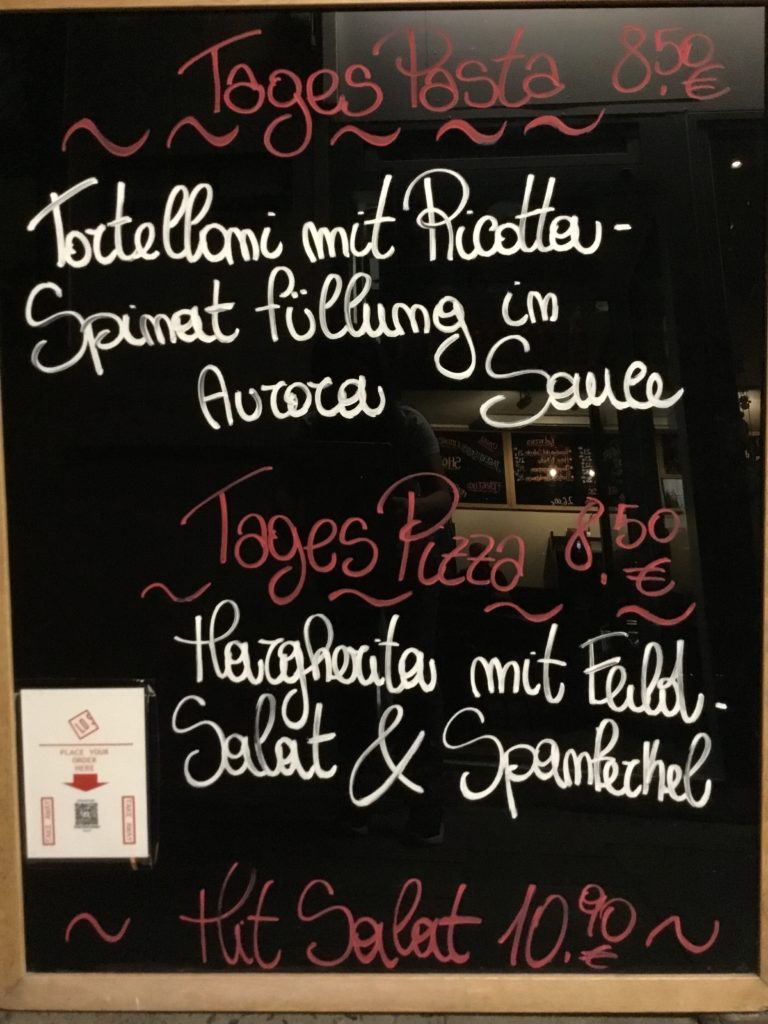 Tages Pasta 8.50 €
Tortelloni mit Ricotta-
Spinat füllung in
Aurora Sauce
Tages Pizza 8.50 €
Margherita mit Feld-
Salat & Spanferkel
PLACE YOUR
ORDER
HERE
Hit Salat 10.90 €